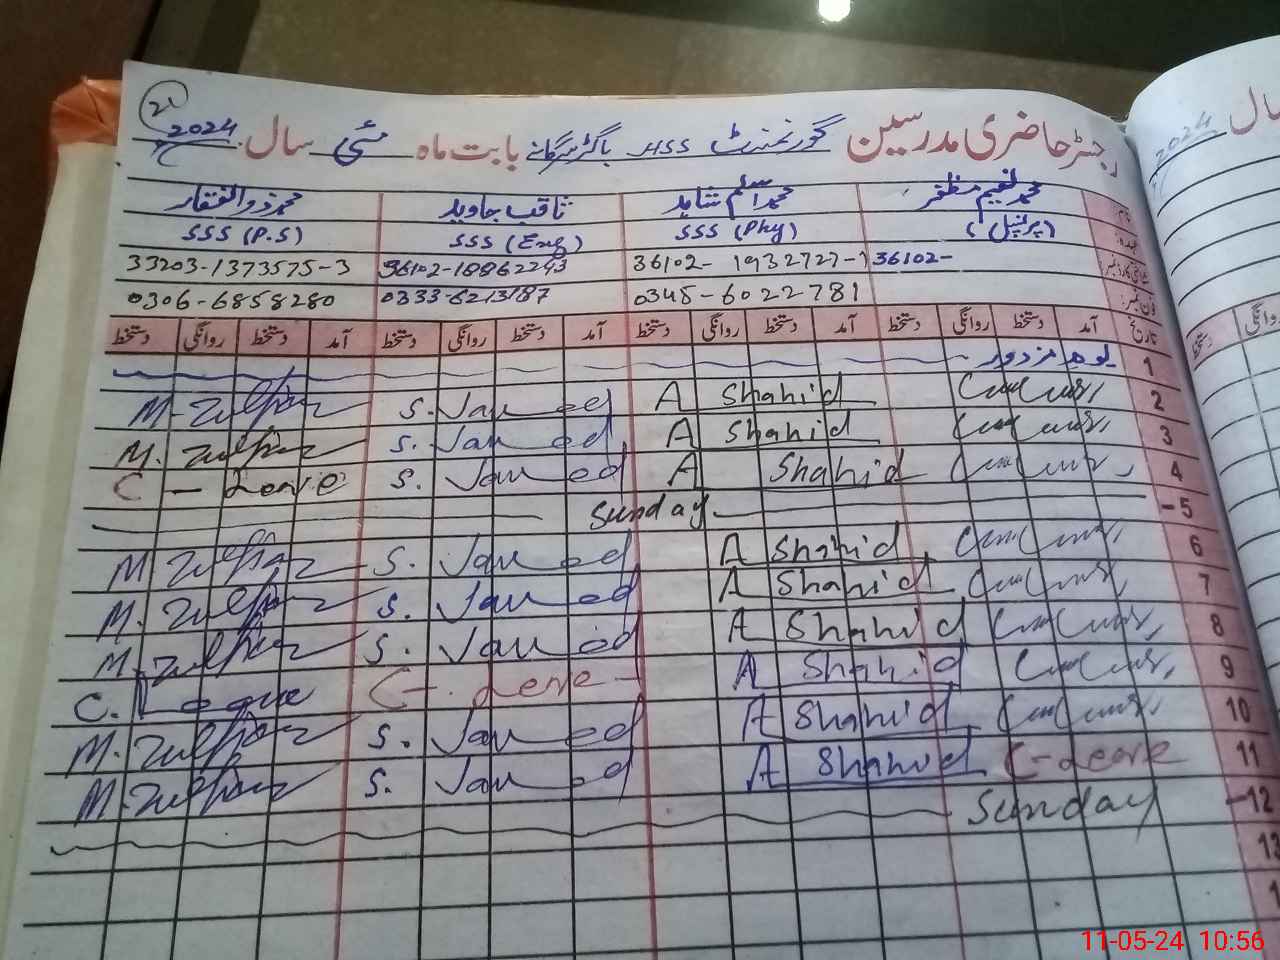 21
رجسٹر حاضری مدرسین گورنمنٹ HSS باگڑ سرگانہ بابت ماہ مئی سال 2024
سال 2024
نام محمد نعیم مظفر محمد اسلم شاہد ثاقب جاوید محمد ذوالفقار
عہدہ (پرنسپل) SSS (Phy) SSS (Eng) SSS (P.S)
شناختی کارڈ نمبر 36102- 36102- 1932727-1 36102-18862243 33203-1373575-3
فون نمبر 0345-6022781 0333-6213187 0306-6858280
تاریخ آمد دستخط روانگی دستخط آمد دستخط روانگی دستخط آمد دستخط روانگی دستخط آمد دستخط روانگی دستخط
روانگی دستخط
1 یوم مزدور
2 A Shahid S. Javed M. Zulfiqar
3 A Shahid S. Javed M. Zulfiqar
4 A Shahid S. Javed C - Leave
5 Sunday
6 A Shahid S. Javed M Zulfiqar
7 A Shahid S. Javed M. Zulfiqar
8 A Shahid S. Javed M. Zulfiqar
9 A Shahid C-. Leve C. Leave
10 A Shahid S. Javed M. Zulfiqar
11 C-Leave A Shahid S. Javed M. Zulfiqar
12 Sunday
13
11-05-24 10:56